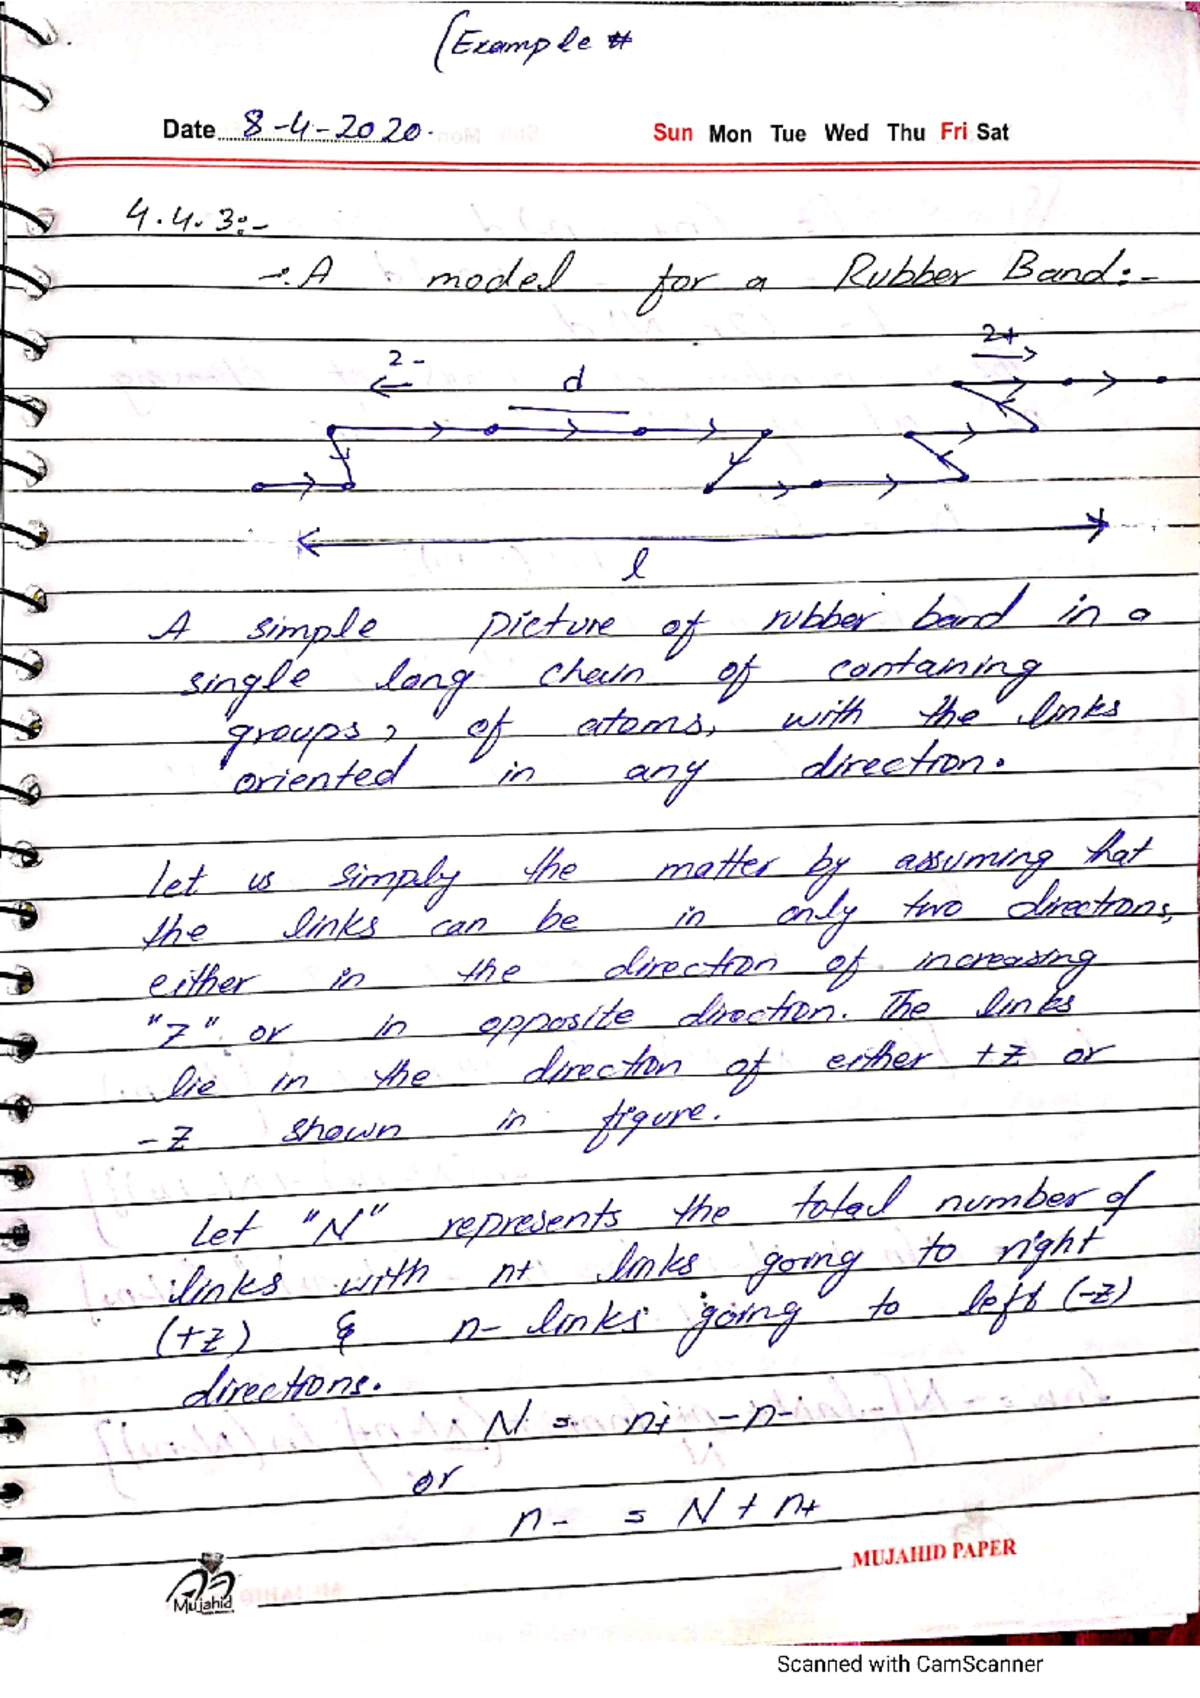 (Example #
Date 8-4-2020. Sun Mon Tue Wed Thu Fri Sat
4.4.3:-
-:A model for a Rubber Band:-
2- d 2+
l
A simple picture of rubber band in a
single long chain of containing
groups, of atoms, with the links
oriented in any direction.
Let us simply the matter by assuming that
the links can be in only two directions,
either in the direction of increasing
"Z" or in opposite direction. The links
lie in the direction of either +Z or
-Z shown in figure.
Let "N" represents the total number of
links with n+ links going to right
(+z) & n- links going to left (-z)
directions.
N = n+ - n-
or
n- = N + n+
MUJAHID PAPER
Mujahid
Scanned with CamScanner